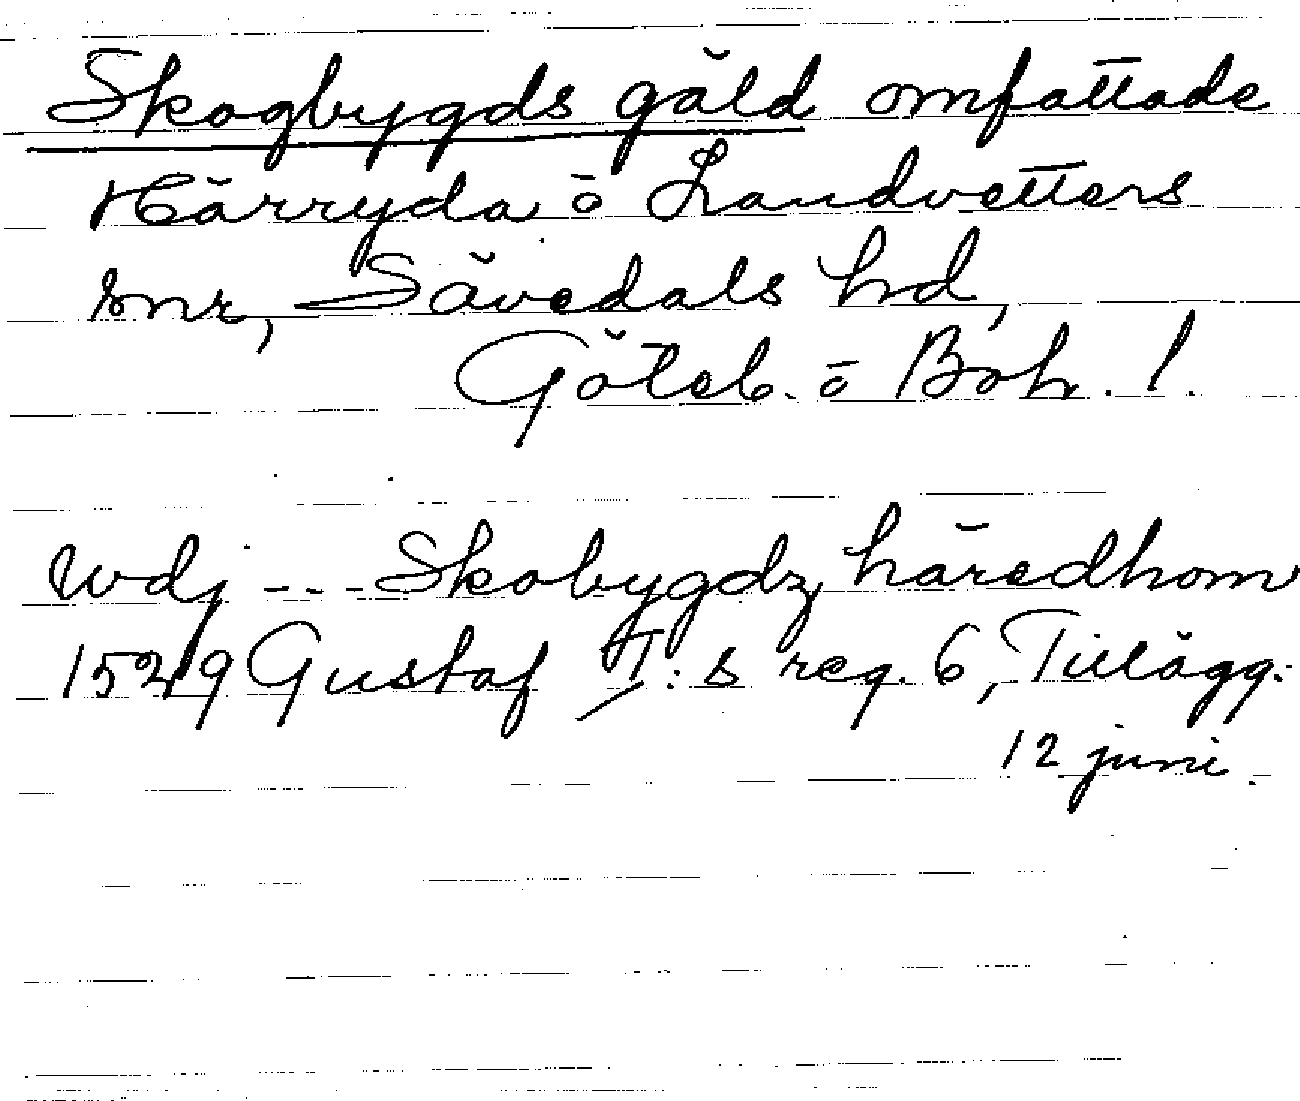 Skogbygds gäld omfattade
Härryda o Landvetters
snr, Sävedals hd,
Göteb. o Boh. l.
wdj --- Skobygdz häredhom
1529 Gustaf I:s reg. 6, Tillägg:
12 juni.